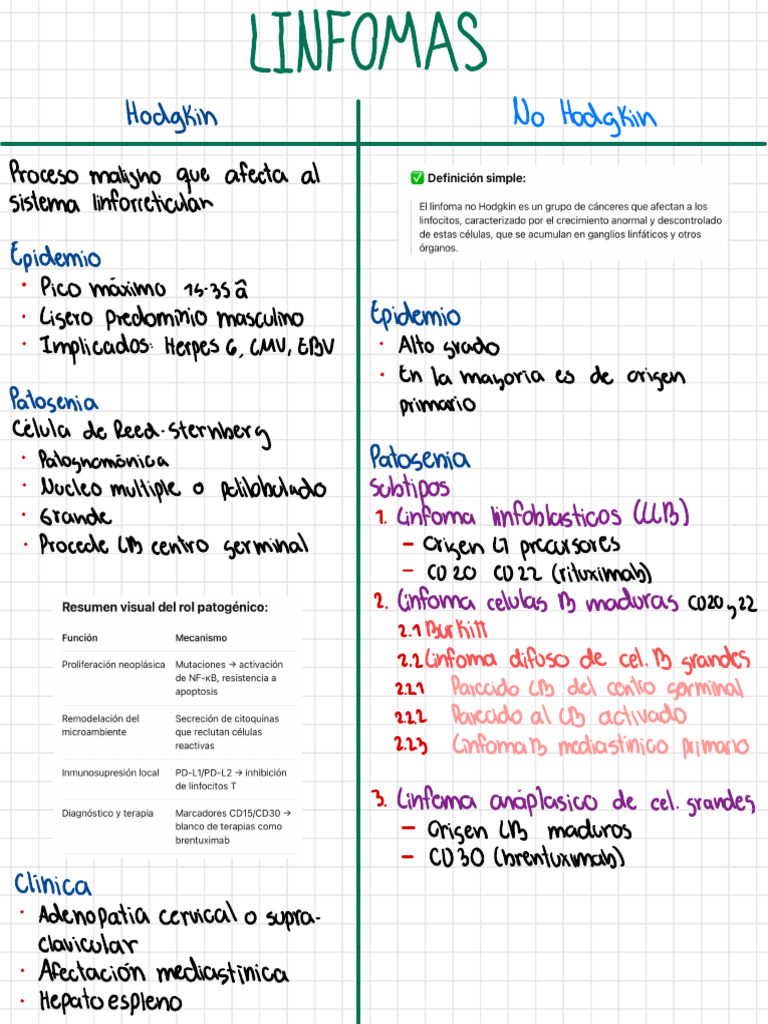 LINFOMAS
Hodgkin
Proceso maligno que afecta al
sistema linforreticular
Epidemio
· Pico máximo 15-35 â
· Ligero predominio masculino
· Implicados: Herpes 6, CMV, EBV
Patogenia
Célula de Reed-Sternberg
· Patognomónica
· Nucleo multiple o polilobulado
· Grande
· Procede LB centro germinal
Resumen visual del rol patogénico:
Función Mecanismo
Proliferación neoplásica Mutaciones → activación
de NF-κB, resistencia a
apoptosis
Remodelación del Secreción de citoquinas
microambiente que reclutan células
reactivas
Inmunosupresión local PD-L1/PD-L2 → inhibición
de linfocitos T
Diagnóstico y terapia Marcadores CD15/CD30 →
blanco de terapias como
brentuximab
Clínica
· Adenopatia cervical o supra-
clavicular
· Afectación mediastinica
· Hepato espleno
No Hodgkin
✅ Definición simple:
El linfoma no Hodgkin es un grupo de cánceres que afectan a los
linfocitos, caracterizado por el crecimiento anormal y descontrolado
de estas células, que se acumulan en ganglios linfáticos y otros
órganos.
Epidemio
· Alto grado
· En la mayoria es de origen
primario
Patogenia
Subtipos
1. Linfoma linfoblasticos (LLB)
– Origen precursores
– CD20 CD22 (rituximab)
2. Linfoma celulas B maduras CD20 y 22
2.1 Burkitt
2.2 Linfoma difuso de cel. B grandes
2.2.1 Parecido LB del centro germinal
2.2.2 Parecido al LB activado
2.2.3 Linfoma B mediastínico primario
3. Linfoma anáplasico de cel. grandes
– Origen LB maduros
– CD30 (brentuximab)